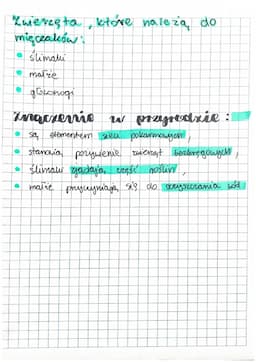 Zwierzęta, które należą do
mięczaków:
• ślimaki
• małże
• głowonogi
Znaczenie w przyrodzie:
• są elementem sieci pokarmowych,
• stanowią pożywienie zwierząt bezkręgowych,
• ślimaki zjadają część roślin,
• małże przyczyniają się do oczyszczania wód